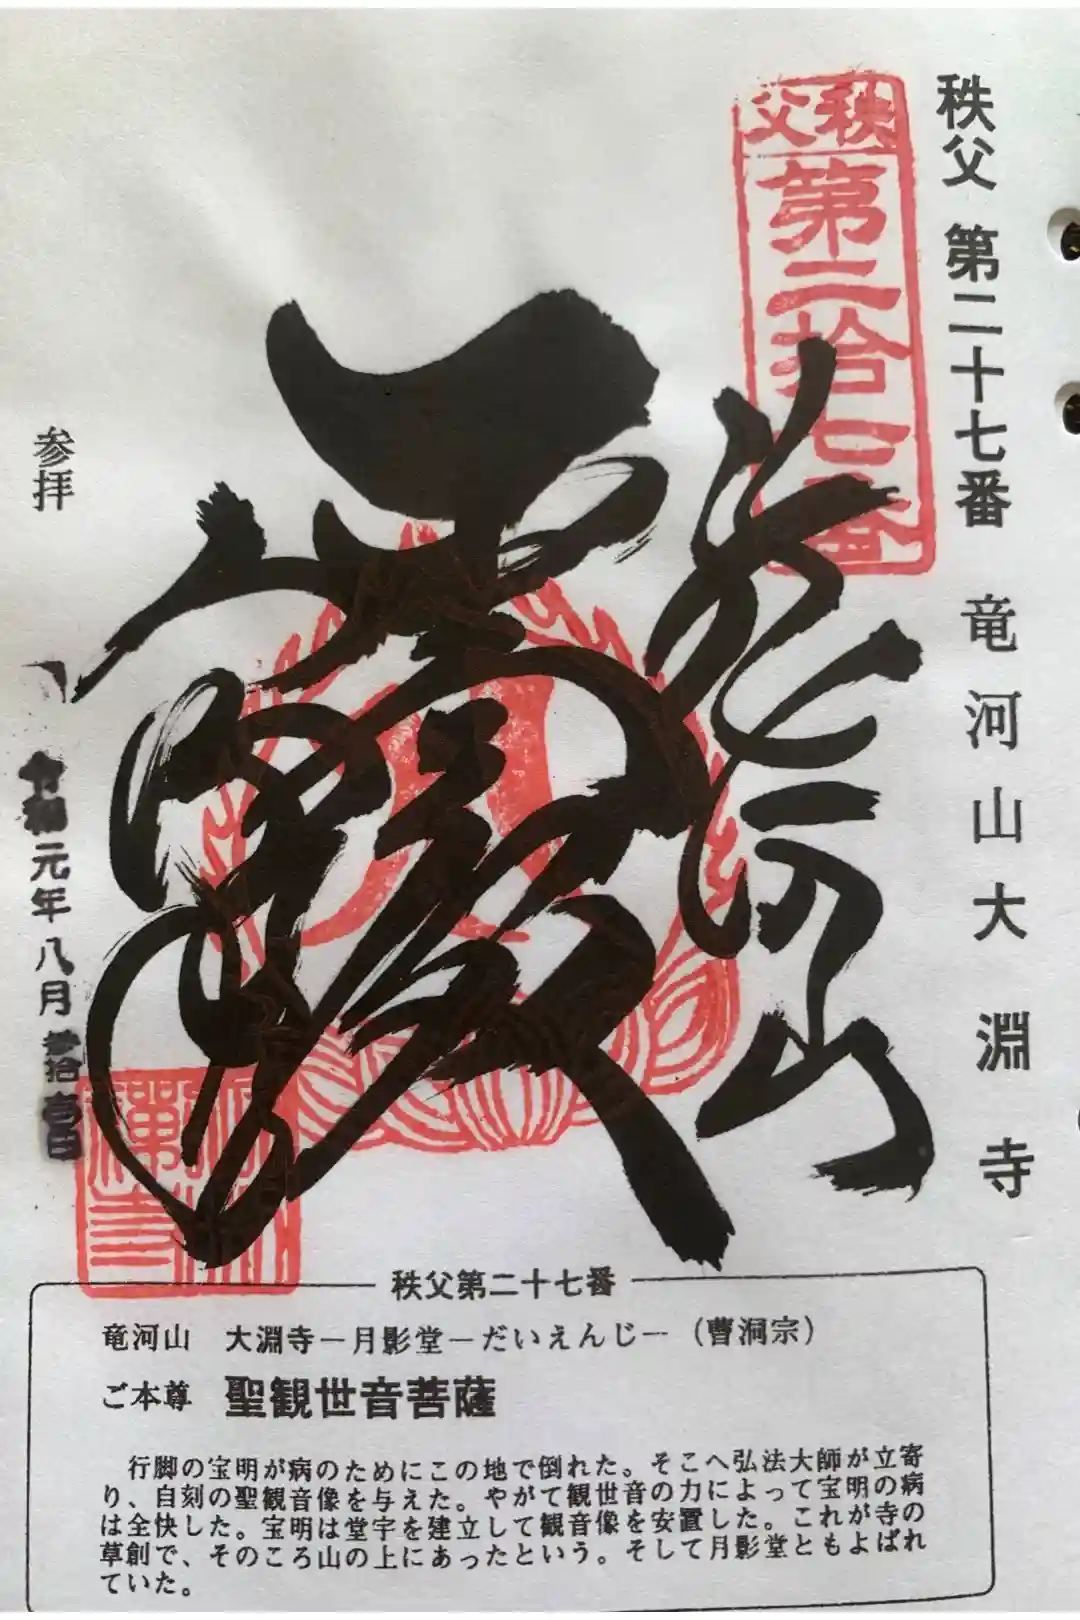 秩父 第二十七番 竜河山大淵寺
秩父
第二拾七番
竜河山
参拝
令和元年八月参拾壱日
秩父第二十七番
竜河山 大淵寺－月影堂－だいえんじ－（曹洞宗）
ご本尊 聖観世音菩薩
行脚の宝明が病のためにこの地で倒れた。そこへ弘法大師が立寄
り、自刻の聖観音像を与えた。やがて観世音の力によって宝明の病
は全快した。宝明は堂宇を建立して観音像を安置した。これが寺の
草創で、そのころ山の上にあったという。そして月影堂ともよばれ
ていた。